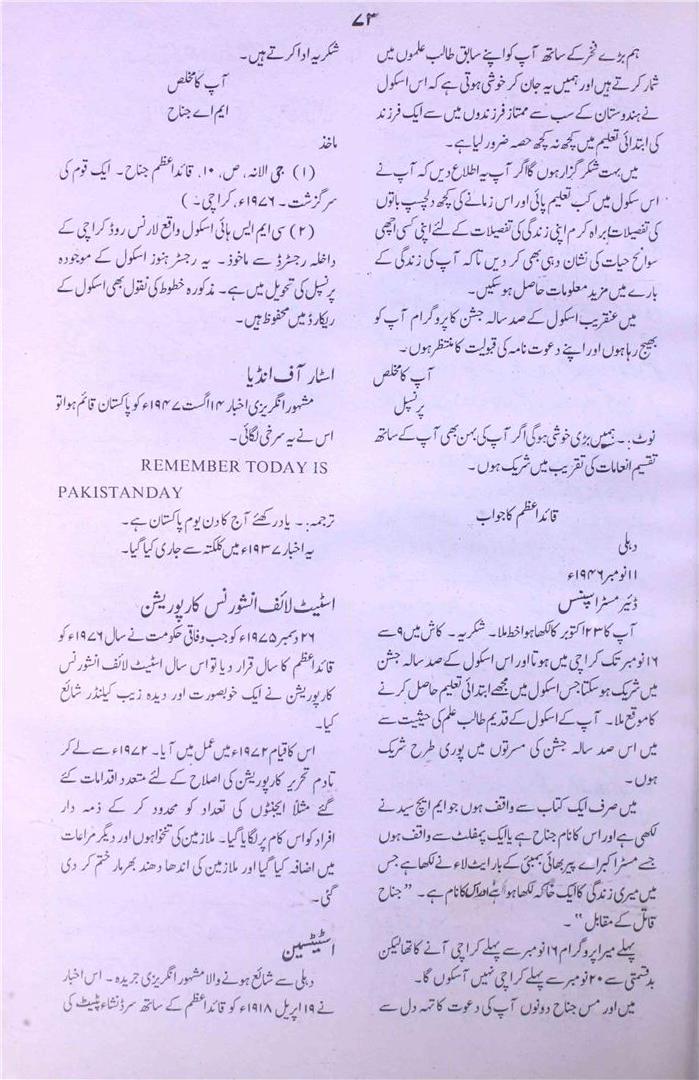 ۷۳
ہم بڑے فخر کے ساتھ آپ کو اپنے سابق طالب علموں میں
شمار کرتے ہیں اور ہمیں یہ جان کر خوشی ہوتی ہے کہ اس اسکول
نے ہندوستان کے سب سے ممتاز فرزندوں میں سے ایک فرزند
کی ابتدائی تعلیم میں کچھ نہ کچھ حصہ ضرور لیا ہے۔
میں بہت شکر گزار ہوں گا اگر آپ یہ اطلاع دیں کہ آپ نے
اس سکول میں کب تعلیم پائی اور اس زمانے کی کچھ دلچسپ باتوں
کی تفصیلات براہ کرم اپنی زندگی کی تفصیلات کے لئے اپنی کسی اچھی
سوانح حیات کی نشان دہی بھی کر دیں تاکہ آپ کی زندگی کے
بارے میں مزید معلومات حاصل ہو سکیں۔
میں عنقریب اسکول کے صد سالہ جشن کا پروگرام آپ کو
بھیج رہا ہوں اور اپنے دعوت نامہ کی قبولیت کا منتظر ہوں۔
آپ کا مخلص
پرنسپل
نوٹ:۔ ہمیں بڑی خوشی ہوگی اگر آپ کی بہن بھی آپ کے ساتھ
تقسیم انعامات کی تقریب میں شریک ہوں۔
قائداعظم کا جواب
دہلی
۱۱ نومبر ۱۹۴۶ء
ڈئیر مسٹر اسپنس
آپ کا ۲۳ اکتوبر کا لکھا ہوا خط ملا۔ شکریہ۔ کاش میں ۹ سے
۱۶ نومبر تک کراچی میں ہوتا اور اس اسکول کے صد سالہ جشن
میں شریک ہو سکتا جس اسکول میں مجھے ابتدائی تعلیم حاصل کرنے
کا موقع ملا۔ آپ کے اسکول کے قدیم طالب علم کی حیثیت سے
میں اس صد سالہ جشن کی مسرتوں میں پوری طرح شریک
ہوں۔
میں صرف ایک کتاب سے واقف ہوں جو ایم ایچ سید نے
لکھی ہے اور اس کا نام جناح ہے یا ایک پمفلٹ سے واقف ہوں
جسے مسٹر اکبر اے پیر بھائی بمبئی کے بار ایٹ لاء نے لکھا ہے جس
میں میری زندگی کا ایک خاکہ لکھا ہوا ہے اور اس کا نام ہے۔ "جناح
قاتل کے مقابل"۔
پہلے میرا پروگرام ۱۶ نومبر سے پہلے کراچی آنے کا تھا لیکن
بدقسمتی سے ۲۰ نومبر سے پہلے کراچی نہیں آسکوں گا۔
میں اور مس جناح دونوں آپ کی دعوت کا تہہ دل سے
شکریہ ادا کرتے ہیں۔
آپ کا مخلص
ایم اے جناح
ماخذ
(۱) جی الانہ، ص، ۱۰، قائداعظم جناح۔ ایک قوم کی
سرگزشت۔ ۱۹۷۶ء، کراچی۔)
(۲) سی ایم ایس ہائی اسکول واقع لارنس روڈ کراچی کے
داخلہ رجسٹرڈ سے ماخوذ۔ یہ رجسٹر ہنوز اسکول کے موجودہ
پرنسپل کی تحویل میں ہے۔ مذکورہ خطوط کی نقول بھی اسکول کے
ریکارڈ میں محفوظ ہیں۔
اسٹار آف انڈیا
مشہور انگریزی اخبار ۱۴ اگست ۱۹۴۷ء کو پاکستان قائم ہوا تو
اس نے یہ سرخی لگائی۔
REMEMBER TODAY IS
PAKISTANDAY
ترجمہ:۔ یاد رکھئے آج کا دن یوم پاکستان ہے۔
یہ اخبار ۱۹۳۷ء میں کلکتہ سے جاری کیا گیا۔
اسٹیٹ لائف انشورنس کارپوریشن
۲۶ دسمبر ۱۹۷۵ء کو جب وفاقی حکومت نے سال ۱۹۷۶ء کو
قائداعظم کا سال قرار دیا تو اس سال اسٹیٹ لائف انشورنس
کارپوریشن نے ایک خوبصورت اور دیدہ زیب کیلنڈر شائع
کیا۔
اس کا قیام ۱۹۷۲ء میں عمل میں آیا۔ ۱۹۷۲ء سے لے کر
تادم تحریر کارپوریشن کی اصلاح کے لئے متعدد اقدامات کئے
گئے مثلاً ایجنٹوں کی تعداد کو محدود کر کے ذمہ دار
افراد کو اس کام پر لگایا گیا۔ ملازمین کی تنخواہوں اور دیگر مراعات
میں اضافہ کیا گیا اور ملازمین کی اندھا دھند بھرمار ختم کر دی
گئی۔
اسٹیٹسمین
دہلی سے شائع ہونے والا مشہور انگریزی جریدہ۔ اس اخبار
نے ۱۹ اپریل ۱۹۱۸ء کو قائداعظم کے ساتھ سر ڈنشاء پٹیٹ کی